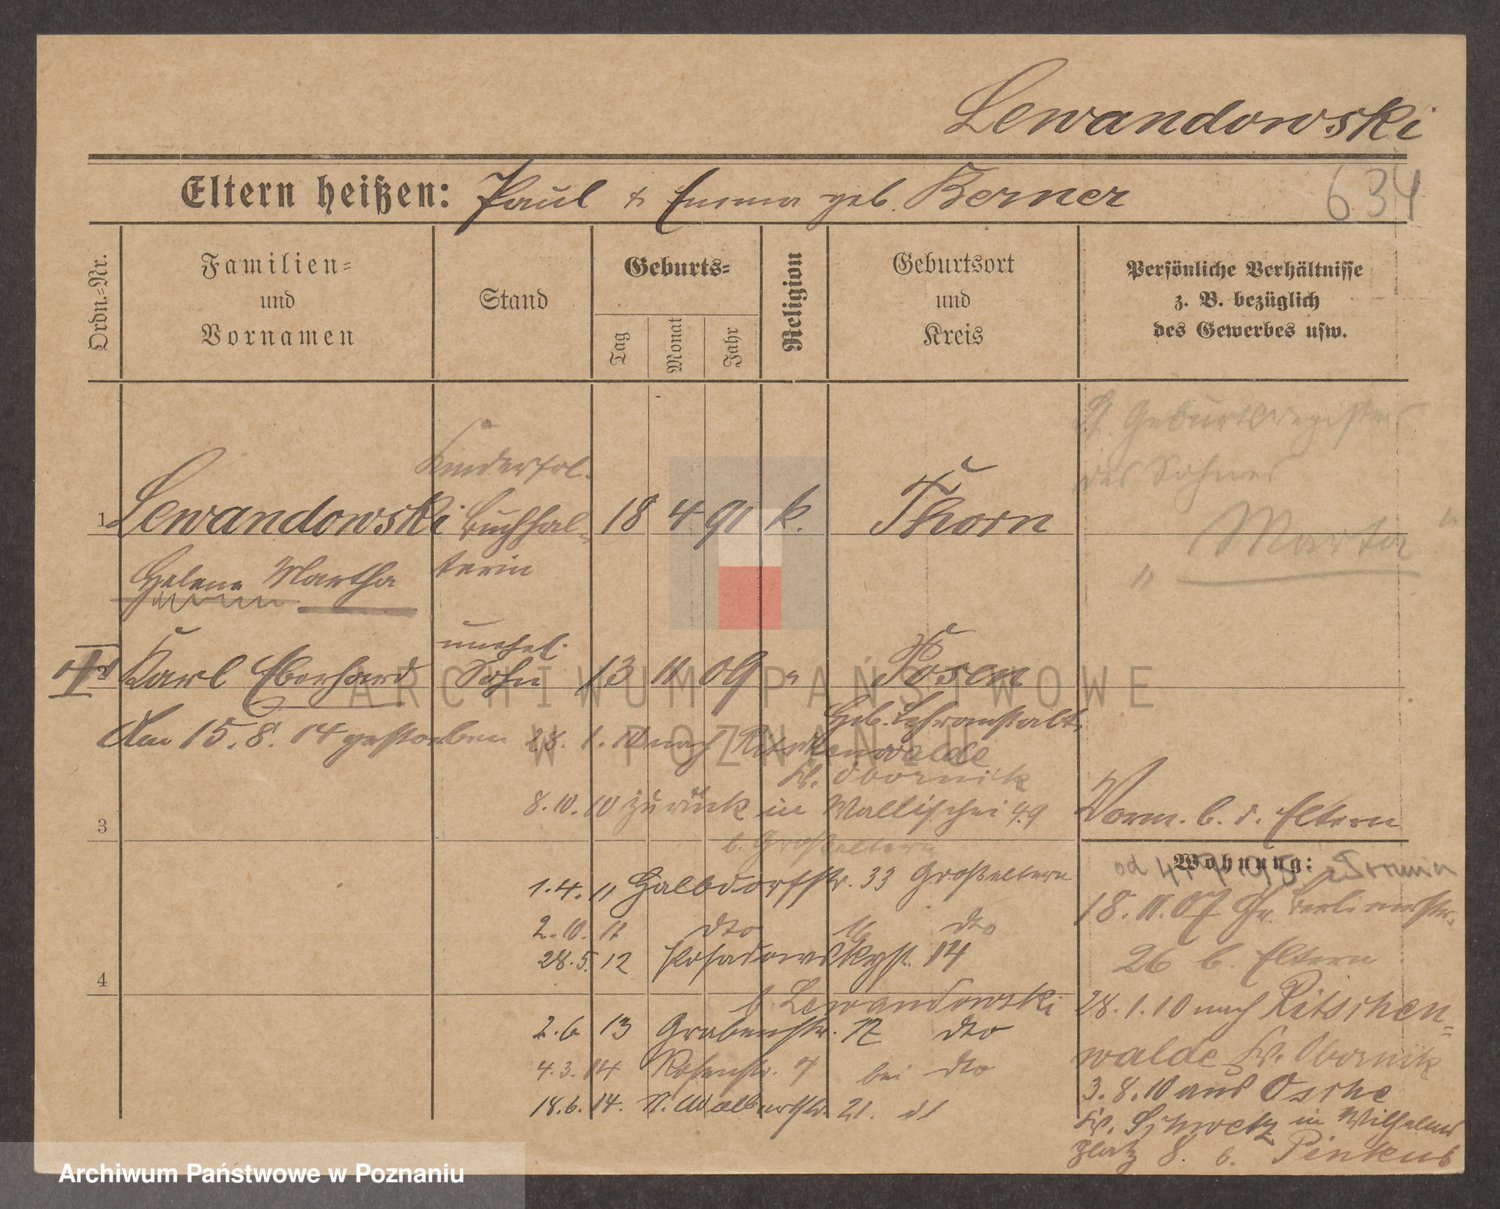 Lewandowski
Eltern heißen: Paul & Emma geb. Berner
634
Ordn.=Nr.
Familien=
und
Vornamen
Stand
Geburts=
Tag
Monat
Jahr
Religion
Geburtsort
und
Kreis
Persönliche Verhältnisse
z. B. bezüglich
des Gewerbes usw.
Geburtsregister
des Sohnes
"Marta"
1 Lewandowski
Helene Martha
Buchhal-
terin
18 4 91 k. Thorn
Karl Eberhard
unehel.
Sohn
13 11 09 " Posen
Am 15.8.14 gestorben
Heb. Lehranstalt
28.1.10 nach Ritschenwalde
Kr. Obornik
8.10.10 zurück in Wallischei 49
b. Großeltern
3
Vorm. b. d. Eltern
Wohnung:
1.4.11 Halbdorfstr. 33 Großeltern
2.10.11 dto 16 dto
28.5.12 Posadowskystr. 14
b. Lewandowski
4
2.6.13 Grabenstr. 12 dto
4.3.14 Rosenstr. 7 bei dto
18.6.14. 21.
18.11.07 Gr. Berlinerstr.
26 b. Eltern
28.1.10 nach Ritschen=
walde Kr. Obornik
3.8.10 aus Osche
Kr. Schwetz in Wilhelms
platz 8. b. Pinkus
ARCHIWUM PAŃSTWOWE
W POZNANIU
Archiwum Państwowe w Poznaniu